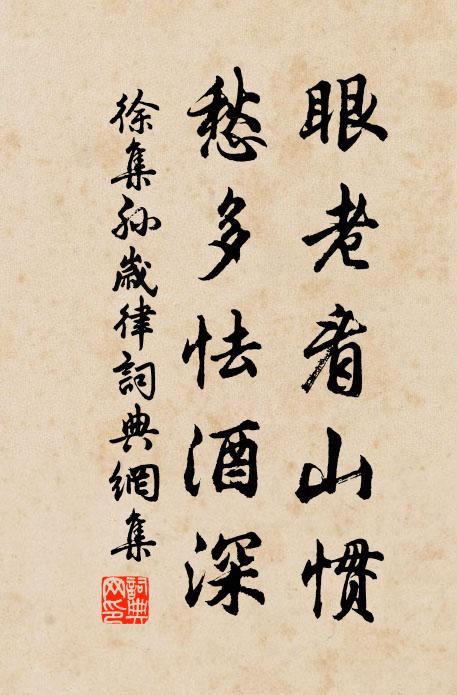 眼老看山慣
愁多怯酒深
徐集孫歲律詞典網集
詞典
网印